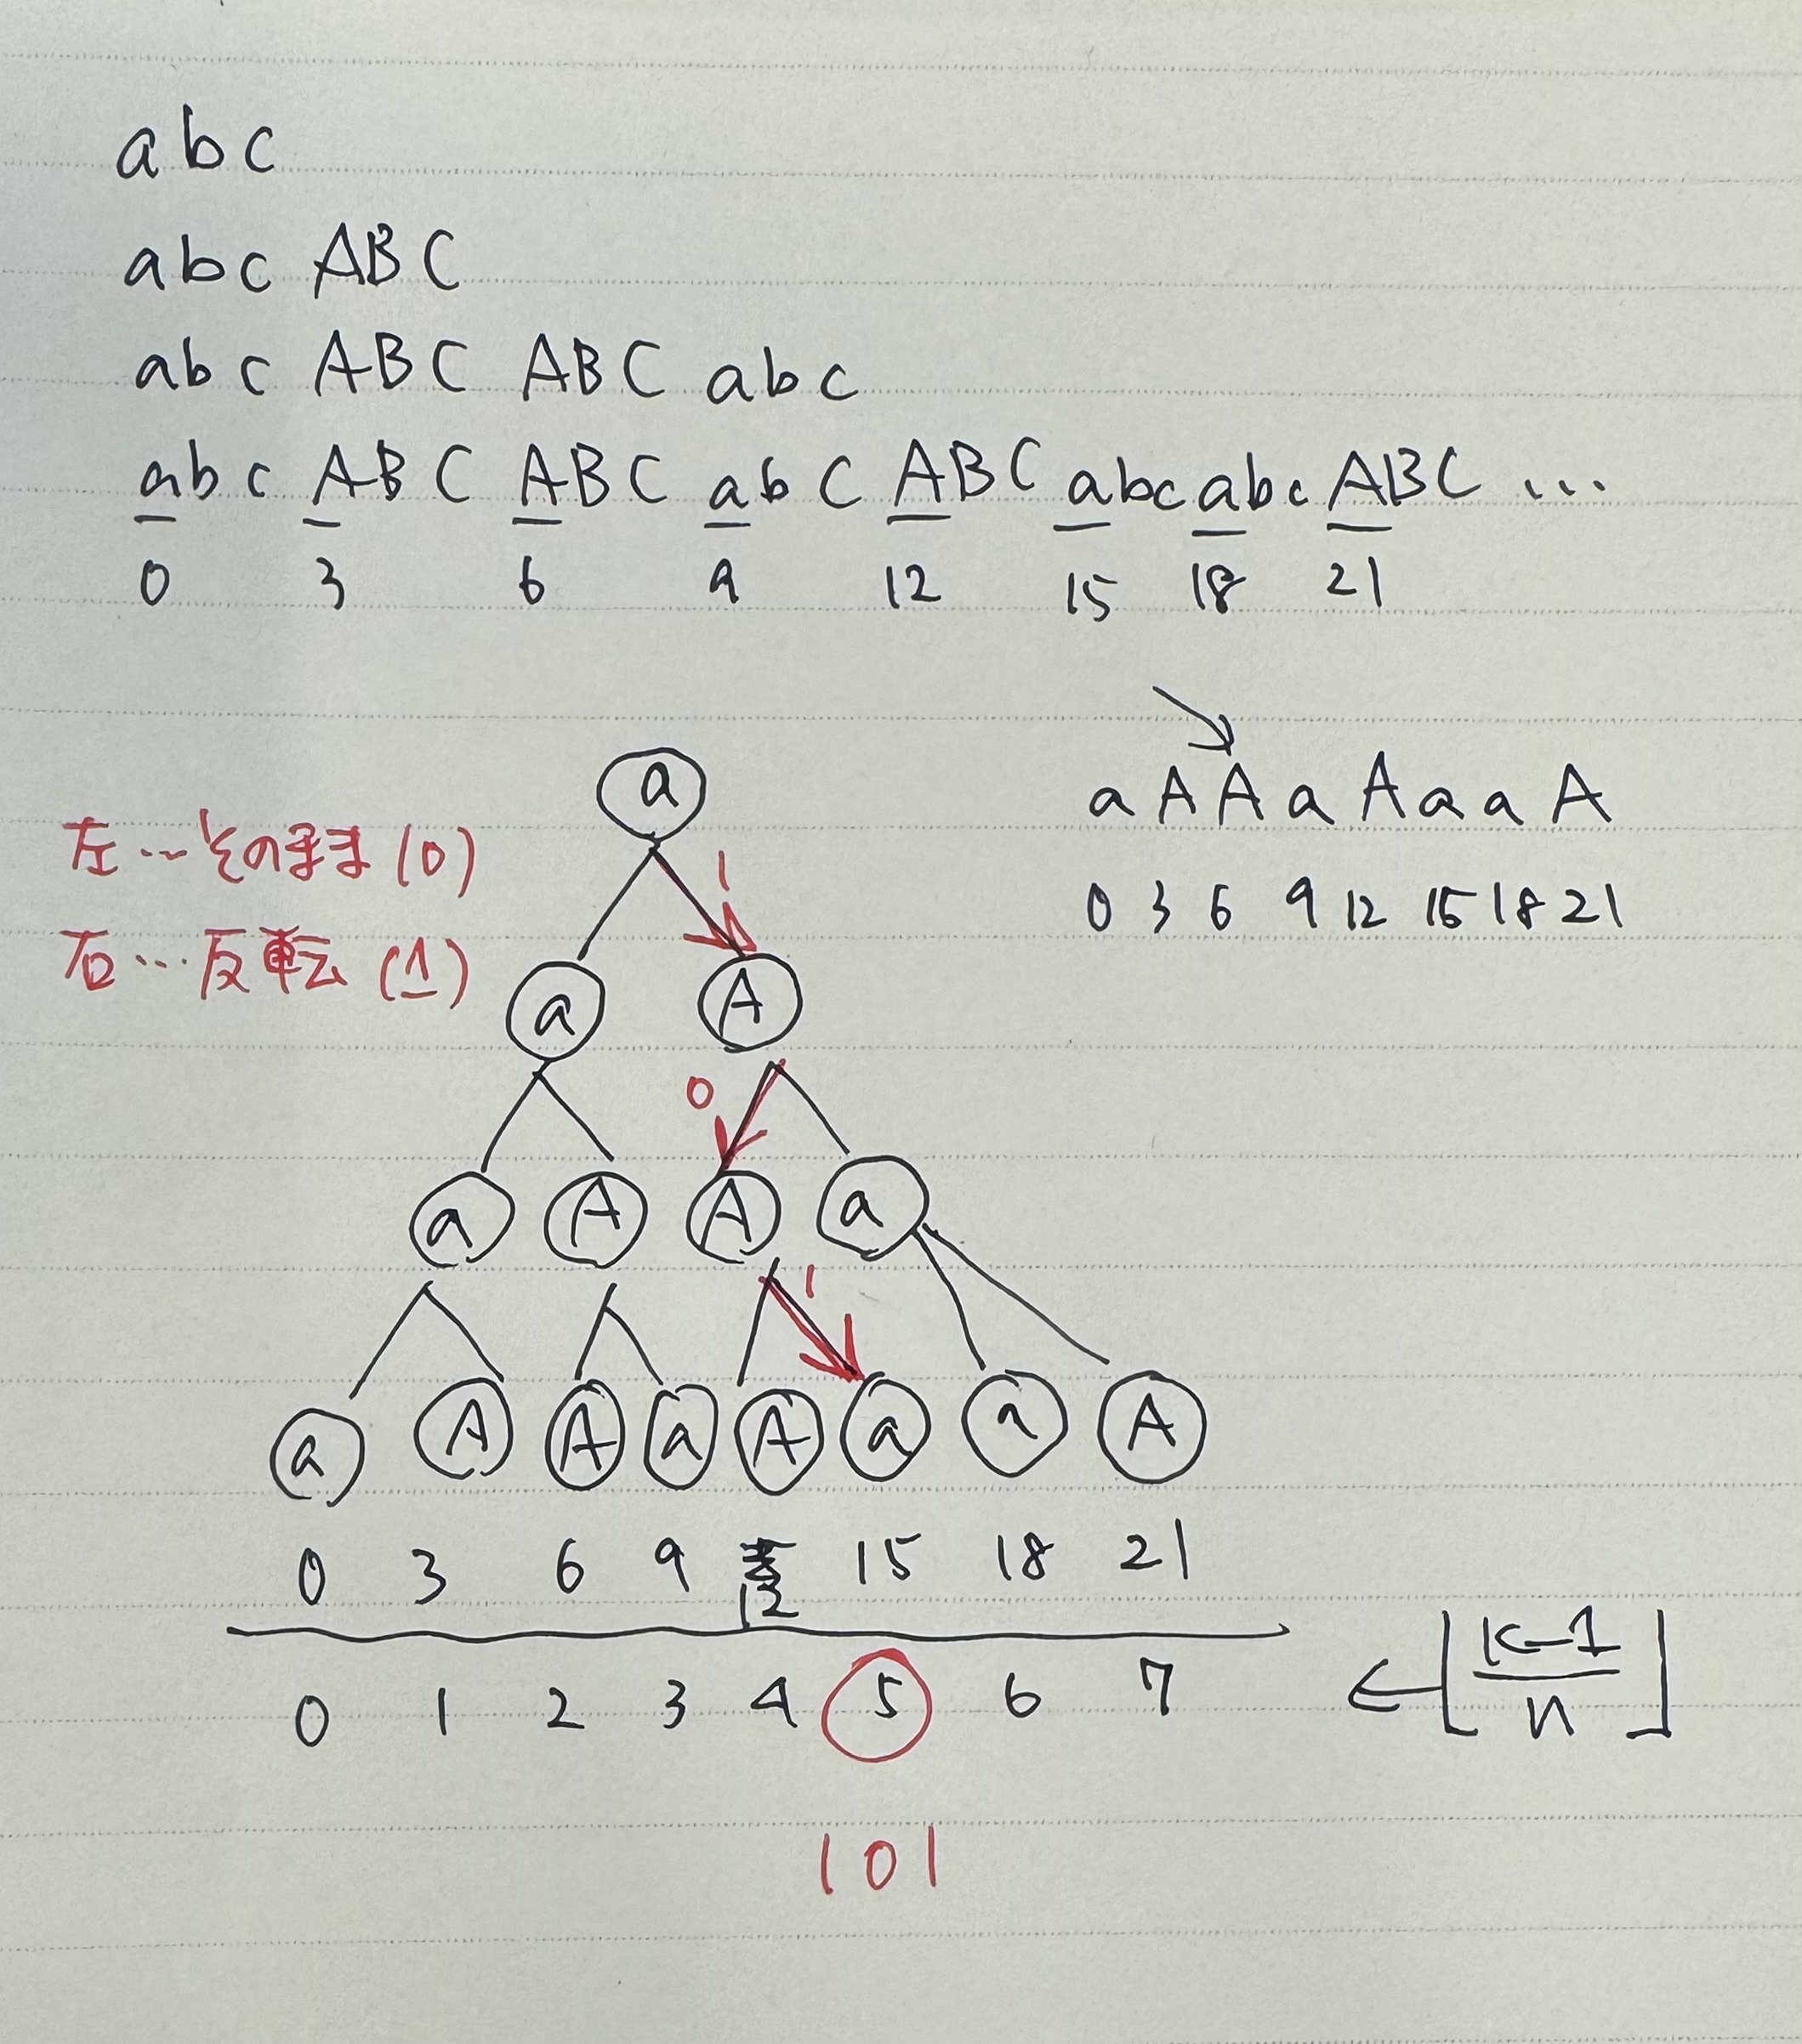 abc
abc ABC
abc ABC ABC abc
abc ABC ABC abC ABC abc abc ABC ...
0 3 6 9 12 15 18 21
a A A a A a a A
0 3 6 9 12 15 18 21
左…そのまま(0)
右…反転(1)
a
1
a A
0
a A A a
1
a A A a A a a A
0 3 6 9 12 15 18 21
0 1 2 3 4 5 6 7 ← ⌊K-1/n⌋
101